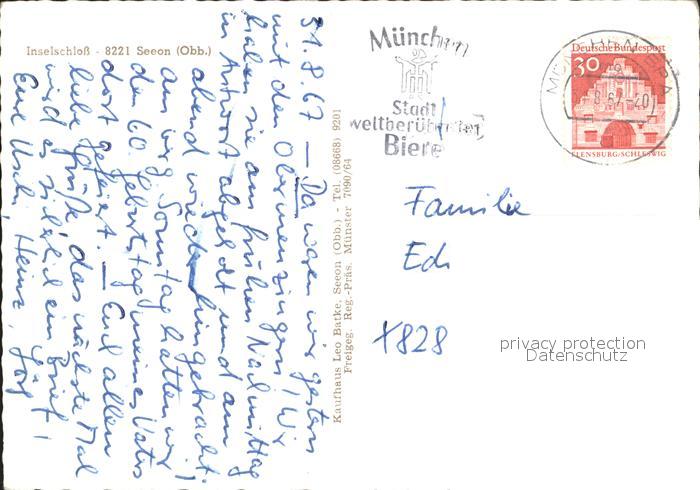 Inselschloß - 8221 Seeon (Obb.)
31.8.67 — Da waren wir gestern
mit den Obermenzingern! Wir
haben sie am frühen Nachmittag
in Antwort abgeholt und am
abend wieder hingebracht.
Am vorg. Sonntag hatten wir
den 60. Geburtstag meines Vaters
dort gefeiert. — Euch allen
liebe Grüße, das nächste Mal
wird es ein Brief!
Eure Uschi, Heinz, Jörg
Kaufhaus Leo Batke, Seeon (Obb.) - Tel. (08668) 9201
Freigeg. Reg.-Präs. Münster 7090/64
München
Stadt
weltberühmter
Biere
Deutsche Bundespost
30
FLENSBURG/SCHLESWIG
Familie
X828
privacy protection
Datenschutz